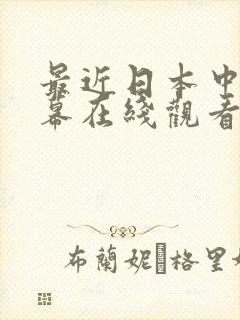 最近日本中
幕在綫觀看
布蘭妮·格里